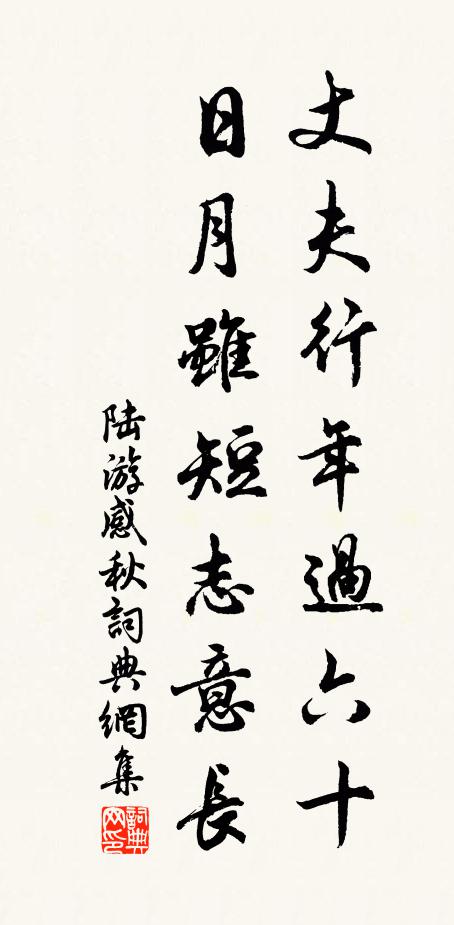 丈夫行年過六十
日月雖短志意長
陆游感秋詞典網集
詞典網印